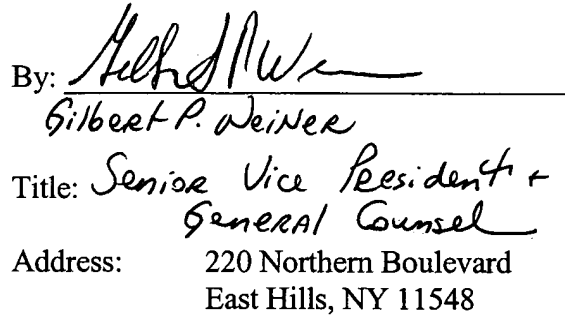 By: Gilbert P. Weiner
Gilbert P. Weiner
Title: Senior Vice President +
General Counsel
Address: 220 Northern Boulevard
East Hills, NY 11548